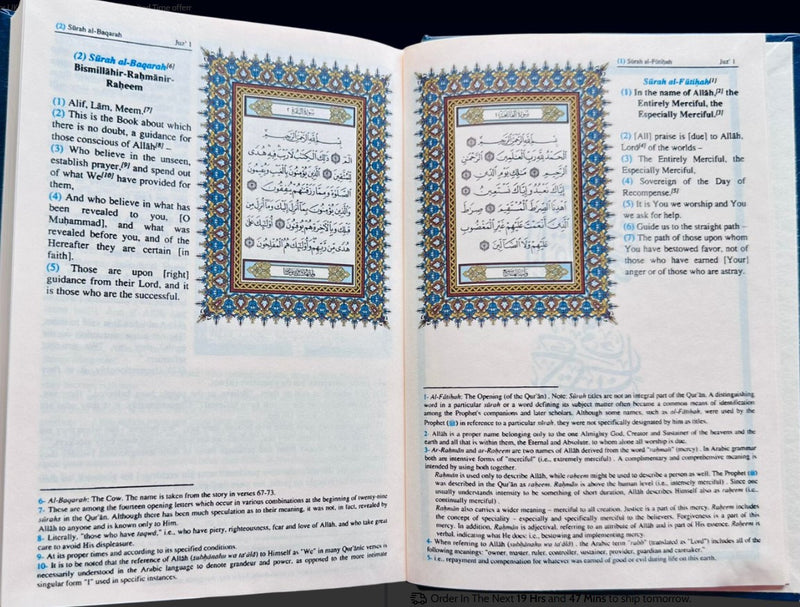 (2) Sūrah al-Baqarah
Juz' 1
(2) Sūrah al-Baqarah[6]
Bismillāhir-Raḥmānir-
Raḥeem
(1) Alif, Lām, Meem.[7]
(2) This is the Book about which
there is no doubt, a guidance for
those conscious of Allāh[8] –
(3) Who believe in the unseen,
establish prayer,[9] and spend out
of what We[10] have provided for
them,
(4) And who believe in what has
been revealed to you, [O
Muḥammad], and what was
revealed before you, and of the
Hereafter they are certain [in
faith].
(5) Those are upon [right]
guidance from their Lord, and it
is those who are the successful.
سورة البقرة ٢
بسم الله الرحمن الرحيم
الم ١ ذلك الكتب لا ريب فيه هدى
للمتقين ٢ الذين يؤمنون بالغيب ويقيمون
الصلوة ومما رزقنهم ينفقون ٣
والذين يؤمنون بما أنزل إليك وما أنزل من
قبلك وبالآخرة هم يوقنون ٤ أولئك على
هدى من ربهم وأولئك هم المفلحون ٥
6- Al-Baqarah: The Cow. The name is taken from the story in verses 67-73.
7- These are among the fourteen opening letters which occur in various combinations at the beginning of twenty-nine
sūrahs in the Qur'ān. Although there has been much speculation as to their meaning, it was not, in fact, revealed by
Allāh to anyone and is known only to Him.
8- Literally, "those who have taqwā," i.e., who have piety, righteousness, fear and love of Allah, and who take great
care to avoid His displeasure.
9- At its proper times and according to its specified conditions.
10- It is to be noted that the reference of Allāh (subḥānahu wa ta'ālā) to Himself as "We" in many Qur'ānic verses is
necessarily understood in the Arabic language to denote grandeur and power, as opposed to the more intimate
singular form "I" used in specific instances.
(1) Sūrah al-Fātiḥah
Juz' 1
سورة الفاتحة ١
بسم الله الرحمن الرحيم ١
الحمد لله رب العلمين ٢ الرحمن
الرحيم ٣ ملك يوم الدين ٤
إياك نعبد وإياك نستعين ٥
اهدنا الصرط المستقيم ٦ صرط
الذين أنعمت عليهم غير المغضوب
عليهم ولا الضالين ٧
Sūrah al-Fātiḥah[1]
(1) In the name of Allāh,[2] the
Entirely Merciful, the
Especially Merciful.[3]
(2) [All] praise is [due] to Allāh,
Lord[4] of the worlds –
(3) The Entirely Merciful, the
Especially Merciful,
(4) Sovereign of the Day of
Recompense.[5]
(5) It is You we worship and You
we ask for help.
(6) Guide us to the straight path –
(7) The path of those upon whom
You have bestowed favor, not of
those who have earned [Your]
anger or of those who are astray.
1- Al-Fātiḥah: The Opening (of the Qur'ān). Note: Sūrah titles are not an integral part of the Qur'ān. A distinguishing
word in a particular sūrah or a word defining its subject matter often became a common means of identification
among the Prophet's companions and later scholars. Although some names, such as al-Fātiḥah, were used by the
Prophet (ﷺ) in reference to a particular sūrah, they were not specifically designated by him as titles.
2- Allāh is a proper name belonging only to the one Almighty God, Creator and Sustainer of the heavens and the
earth and all that is within them, the Eternal and Absolute, to whom alone all worship is due.
3- Ar-Raḥmān and ar-Raḥeem are two names of Allāh derived from the word "raḥmah" (mercy). In Arabic grammar
both are intensive forms of "merciful" (i.e., extremely merciful). A complimentary and comprehensive meaning is
intended by using both together.
Raḥmān is used only to describe Allāh, while raḥeem might be used to describe a person as well. The Prophet (ﷺ)
was described in the Qur'ān as raḥeem. Raḥmān is above the human level (i.e., intensely merciful). Since one
usually understands intensity to be something of short duration, Allāh describes Himself also as raḥeem (i.e.,
continually merciful).
Raḥmān also carries a wider meaning – merciful to all creation. Justice is a part of this mercy. Raḥeem includes
the concept of speciality – especially and specifically merciful to the believers. Forgiveness is a part of this
mercy. In addition, Raḥmān is adjectival, referring to an attribute of Allāh and is part of His Essence. Raḥeem is
verbal, indicating what He does: i.e., bestowing and implementing mercy.
4- When referring to Allāh (subḥānahu wa ta'ālā), the Arabic term "rabb" (translated as "Lord") includes all of the
following meanings: "owner, master, ruler, controller, sustainer, provider, guardian and caretaker."
5- i.e., repayment and compensation for whatever was earned of good or evil during life on this earth.
Order In The Next 19 Hrs and 47 Mins to ship tomorrow.